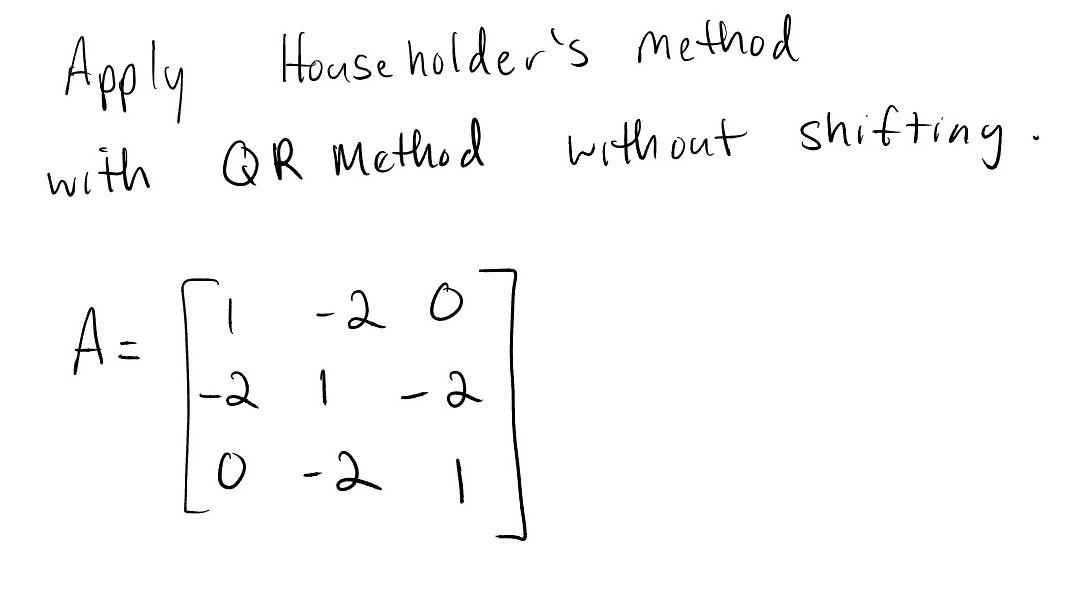 Apply Householder's method
with QR Method without shifting.
A= [1 -2 0
-2 1 -2
0 -2 1]